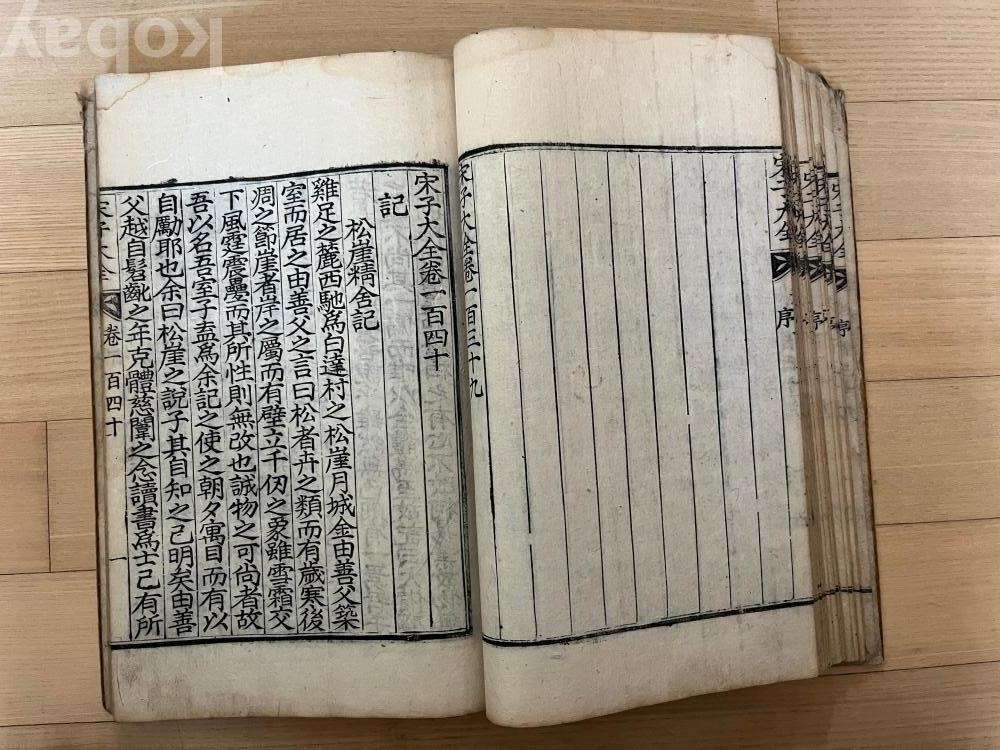 kobay
宋子大全
序
宋子大全卷一百三十九
宋子大全卷一百四十
記
松崖精舍記
雞足之麓西馳爲白達村之松崖月城金由善父築
室而居之由善父之言曰松者卉之類而有歲寒後
凋之節崖者岸之屬而有壁立千仞之象雖雪霜交
下風霆震疊而其所性則無改也誠物之可尚者故
吾以名吾室子盍爲余記之使之朝夕寓目而有以
自勵耶也余曰松崖之說子其自知之已明矣由善
父越自髫齔之年克體慈闈之念讀書爲士已有所
宋子大全 卷一百四十 一